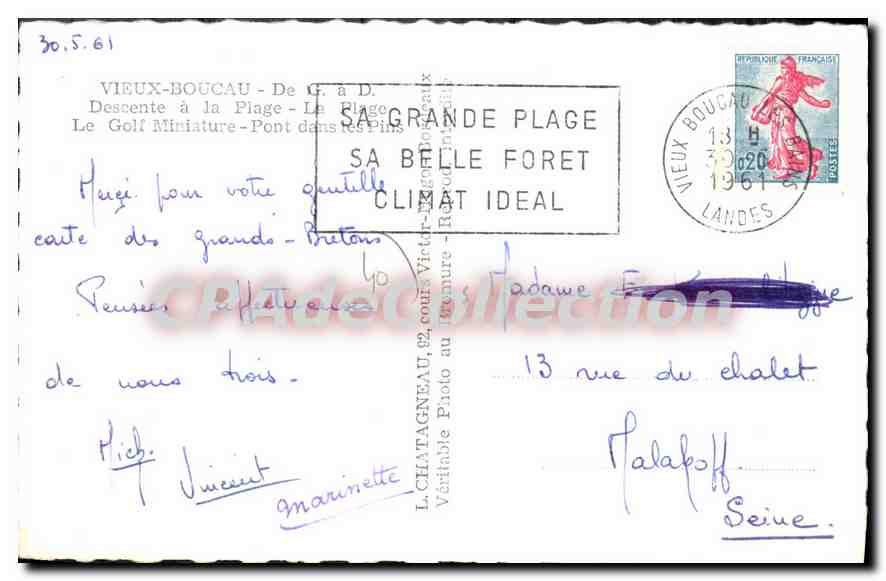 30.5.61
VIEUX-BOUCAU - De G. à D.
Descente à la Plage - La Plage
Le Golf Miniature - Pont dans les Pins
Merçi pour votre gentille
carte des grands-Bretons
Pensées affectueuses
de nous trois -
Mich.
Vincent
Marinette
40
L. CHATAGNEAU, 92, cours Victor-Hugo, Bordeaux
Véritable Photo au Bromure - Reprod. interdite
SA GRANDE PLAGE
SA BELLE FORET
CLIMAT IDEAL
VIEUX BOUCAU LES BAINS
13 H
30
1961
LANDES
REPUBLIQUE FRANÇAISE
0,20
POSTES
Madame
13 rue du chalet
Malakoff
Seine.
CPAdeCollection.com